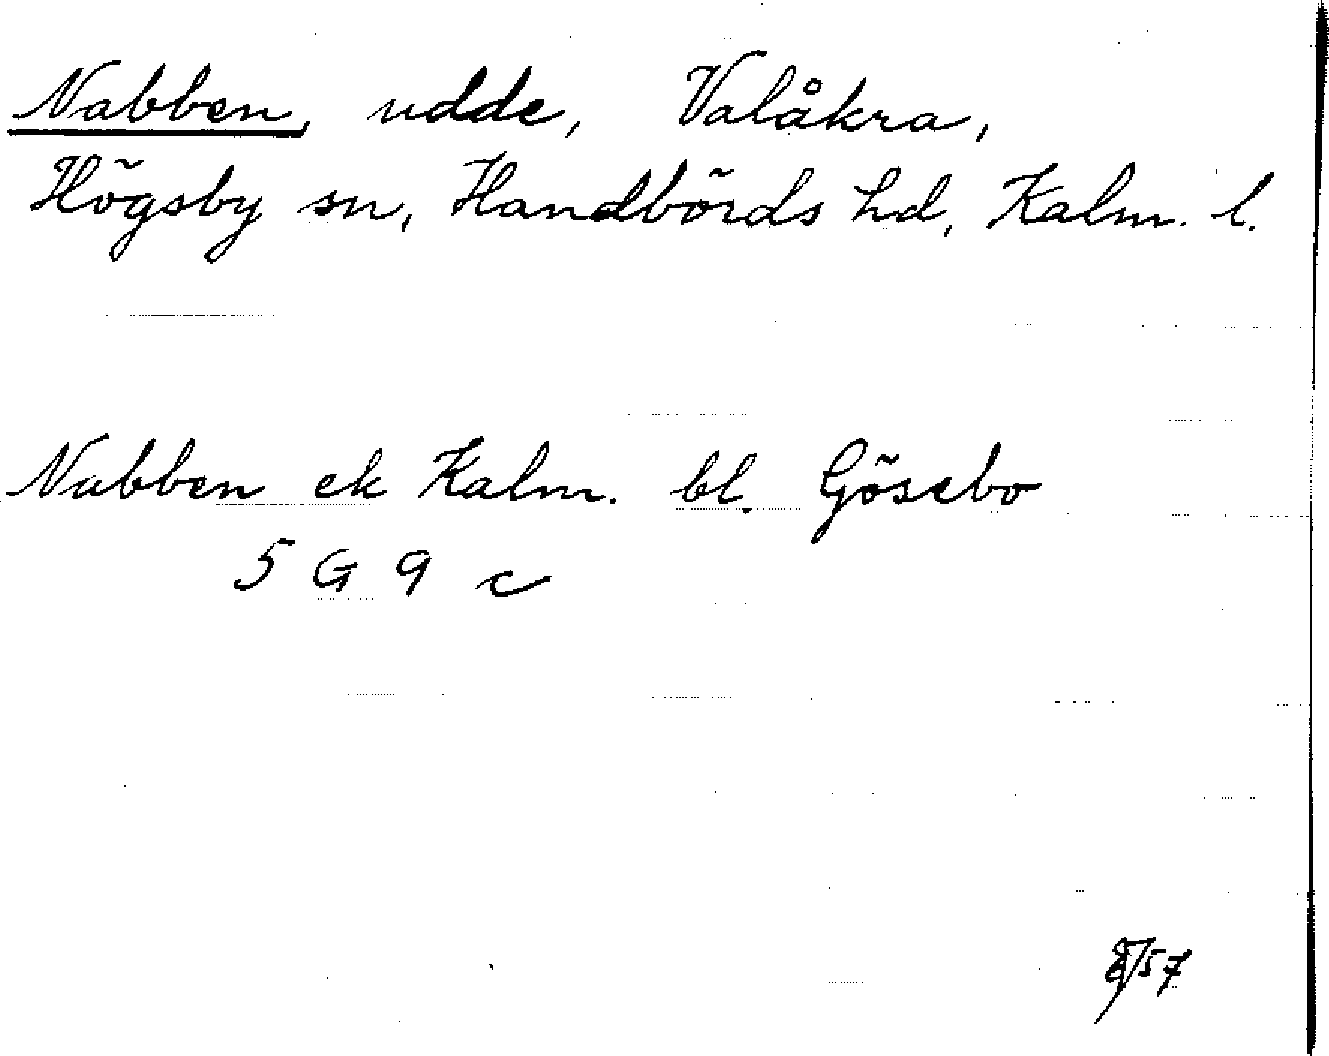 Nabben, udde, Valåkra,
Högsby sn, Handbörds hd, Kalm. l.
Nabben ek Kalm. bl. Gösebo
5 G 9 c
57